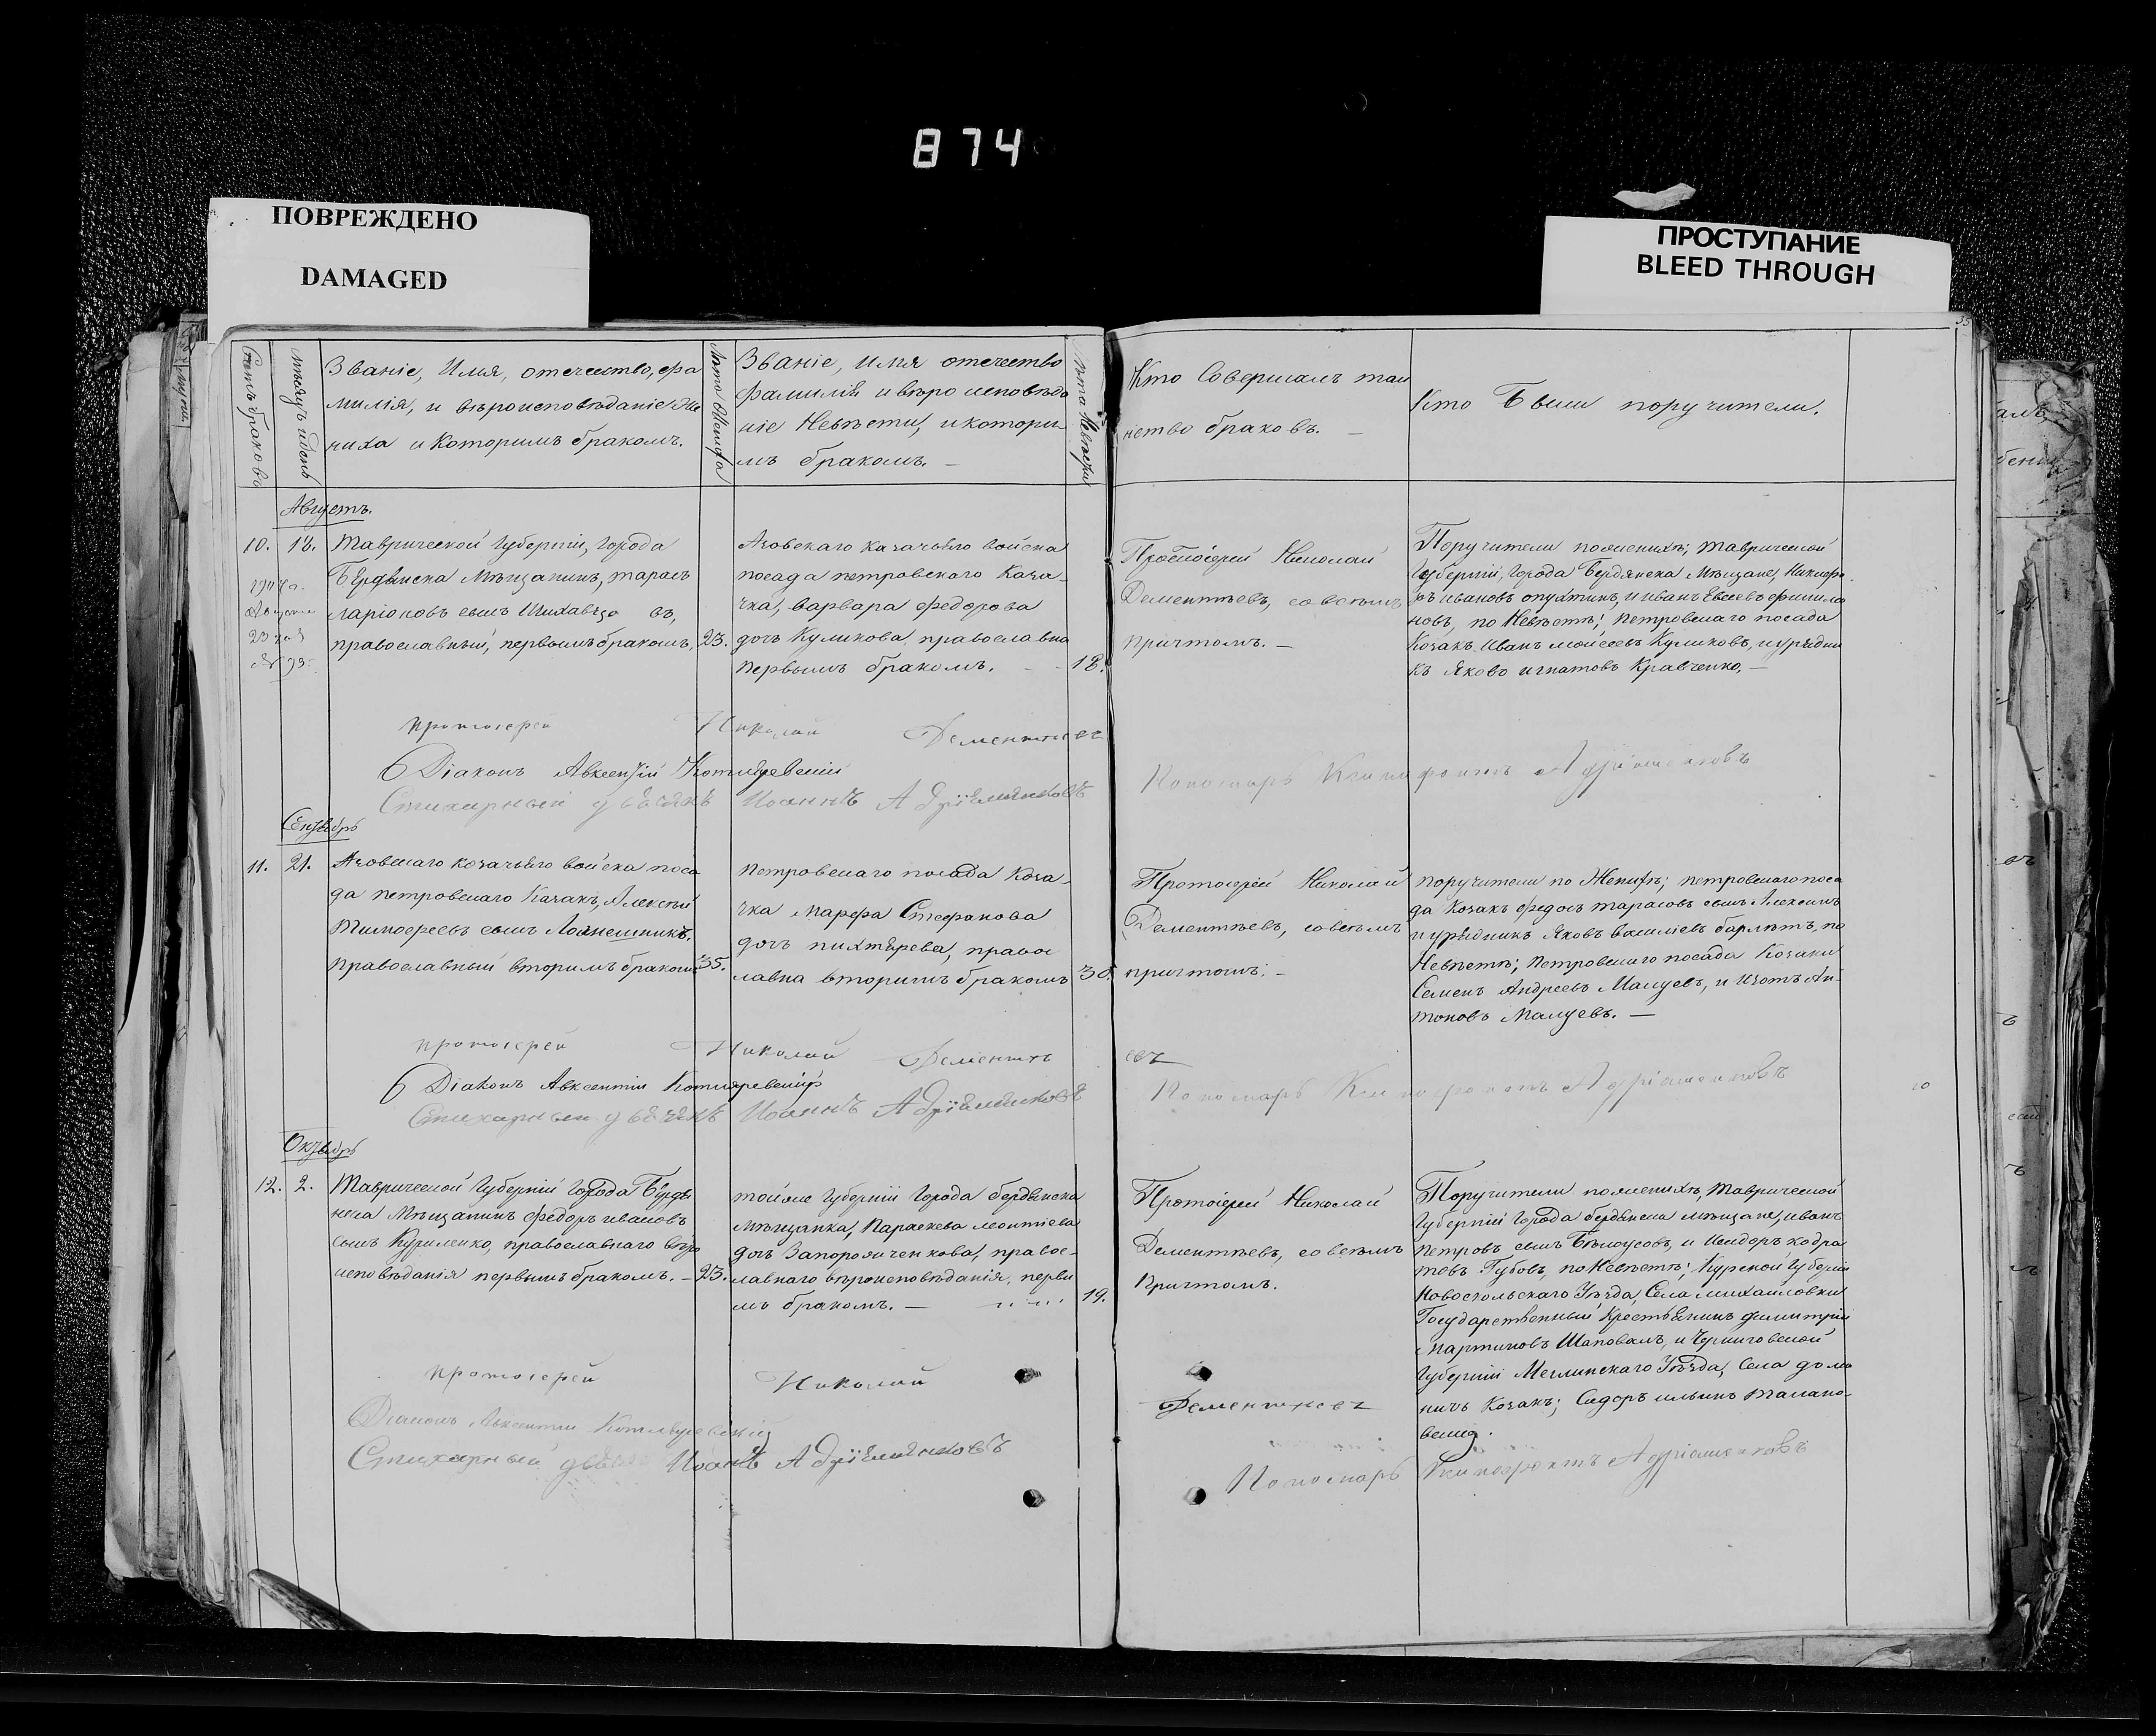 874
ПОВРЕЖДЕНО
DAMAGED
ПРОСТУПАНИЕ
BLEED THROUGH
35
Счетъ браковъ
Мѣсяцъ и день
Званіе, Имя, отечество, фа
милія, и вѣроисповѣданіе Же
ниха и Которимъ бракомъ.
Лѣта Жениха
Званіе, Имя отечество
фамилія и вѣро исповѣда
ніе Невѣсти, и котори
мъ бракомъ. —
Лѣта Невѣсти
Кто Совершалъ таи
нство браковъ. —
Кто Были поручители.
Августъ.
10. 18. Таврической Губерніи, Города
Бердянска Мѣщанинъ, тарасъ
ларіоновъ сынъ
православный, первымъ бракомъ, 23.
Азовскаго казачьяго войска
посада петровского Каза-
чка, варвара федорова
дочь Куликова, православна
первымъ бракомъ. - - 18.
Протоіерей Николай
Дементьевъ, совсемъ
причтомъ. —
Поручители пожениху; таврической
Губерніи, Города Бердянска Мѣщане, Никифо-
ръ ивановъ опухтинъ, и иванъ Евсеевъ филимо
новъ, по Невѣстѣ; петровскаго посада
Козакъ Иванъ мойсеевъ Куликовъ, и урядни
къ Яково игнатовъ Кравченко, —
протоіерей Николай Дементьевъ
Діаконъ Авксентій Котляревскій
Стихарный дьячекъ Иоаннъ
Пономарь
Сентябрь
11. 21. Азовскаго козачьяго войска поса
да петровскаго Казакъ, Алексѣй
Тимофеевъ сынъ
православный вторимъ бракомъ 35.
петровскаго посада Коза-
чка Марфа Стефанова
дочь пихтѣрева, правос
лавна вторимъ бракомъ 30.
Протоіерей Николай
Дементьевъ, совсемъ
причтомъ. —
поручители по Женихѣ; петровскаго поса
да Козакъ федосъ тарасовъ сынъ Алексинъ
и урядникъ Яковъ василіевъ барлетъ, по
Невѣстѣ; петровскаго посада Козаки
Семенъ Андреевъ Малуевъ, и Изотъ Ан-
тоновъ Малуевъ. —
протоіерей Николай Дементь
евъ
Діаконъ Авксентій Котляревскій
Стихарный дьячекъ Иоаннъ
Пономарь
Октябрь
12. 2. Таврической Губерніи Города Бердя
нска Мѣщанинъ федоръ ивановъ
сынъ Куриленко, православнаго вѣро
исповѣданія первымъ бракомъ. — 23.
тойже Губерніи Города бердянска
мѣщанка, Параскева леонтіева
дочь Запорожченкова, правос-
лавнаго вѣроисповѣданія, перви
мъ бракомъ. — 19.
Протоіерей Николай
Дементьевъ, совсемъ
Причтомъ.
Поручители пожениху, таврической
Губерніи Города бердянска мѣщане, иванъ
петровъ сынъ Бѣлоусовъ, и Исидоръ кодра
товъ Губовъ, по Невѣстѣ; Курской Губерніи
Новоскольскаго Уѣзда, Села михайловки
Государственный Крестьянинъ димитрій
Мартиновъ Шаповалъ, и Черниговской
Губерніи Меглинскаго Уѣзда, Села дома
ничъ Козакъ; Сидоръ ильинъ
протоіерей Николай
Дементьевъ
Діаконъ Авксентій Котляревскій
Стихарный дьячекъ Иоаннъ
Пономарь